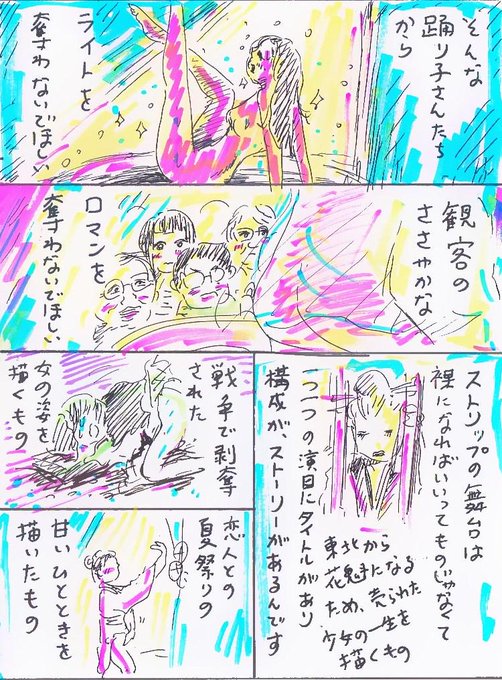 そんな
踊り子さんたち
から
ライトを
奪わないでほしい
観客の
ささやかな
ロマンを
奪わないでほしい
ストリップの舞台は
裸になればいいってものじゃなくて
一つ一つの演目にタイトルがあり
構成が、ストーリーがあるんです
東北から
花魁になる
ため、売られた
少女の一生を
描くもの
戦争で剥奪
された
女の姿を
描くもの
恋人との
夏祭りの
甘いひとときを
描いたもの